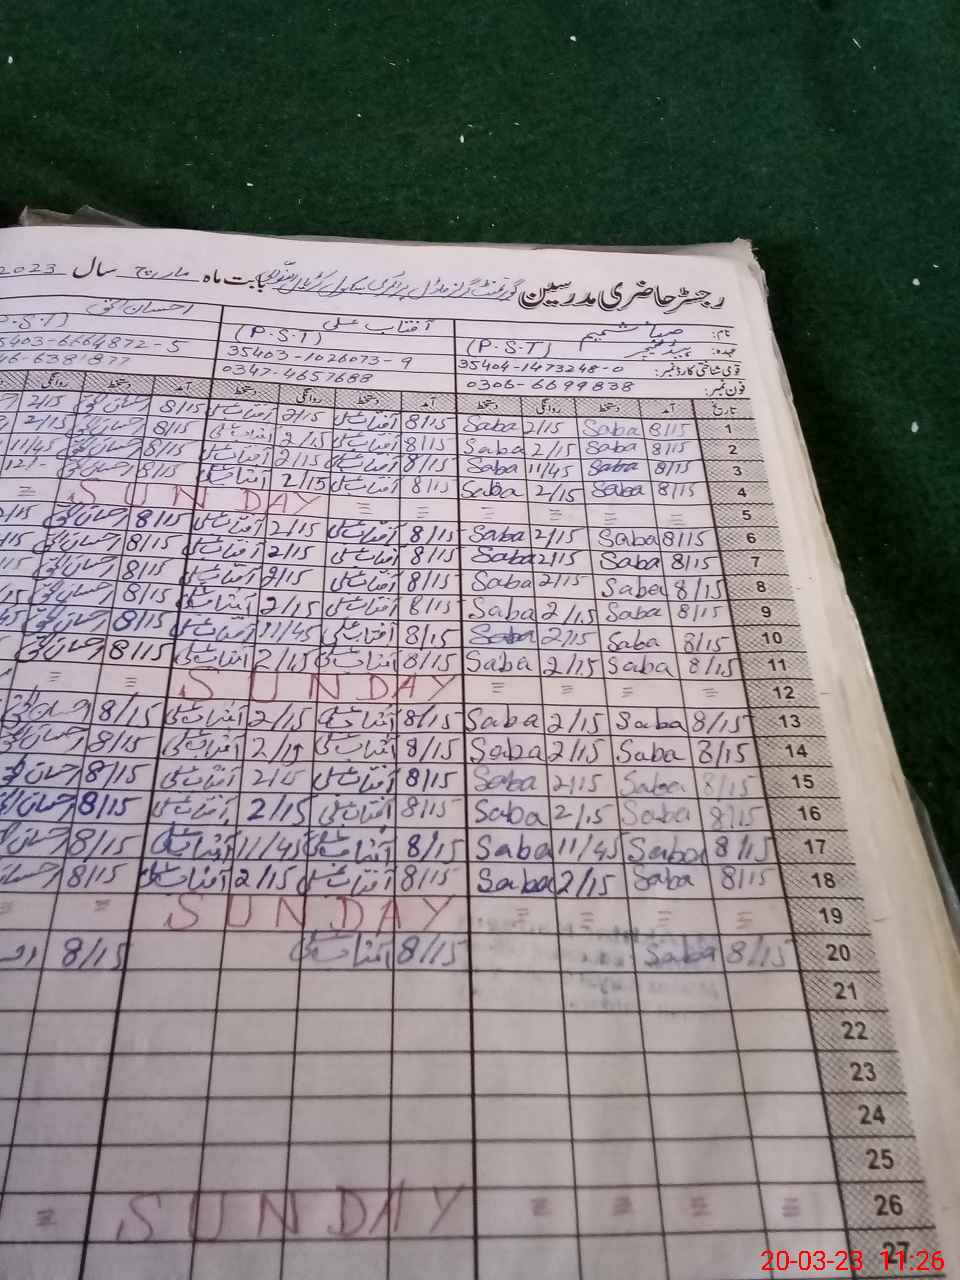 رجسٹر حاضری مدرسین گورنمنٹ گرلز ماڈل پرائمری سکول بابت ماہ مارچ سال 2023
نام: صبا شمیم آفتاب علی احسان الحق
عہدہ: ہیڈ ٹیچر (P.S.T) (P.S.T) P.S.T)
قومی شناختی کارڈ نمبر: 35404-1473248-0 35403-1026073-9 5403-6664872-5
فون نمبر: 0306-6699838 0347-4657688 46-6381877
تاریخ آمد دستخط روانگی دستخط آمد دستخط روانگی دستخط آمد دستخط روانگی
1 8/15 Saba 2/15 Saba 8/15 آفتاب علی 2/15 آفتاب علی 8/15 احسان الحق 2/15
2 8/15 Saba 2/15 Saba 8/15 آفتاب علی 2/15 آفتاب علی 8/15 احسان الحق 2/15
3 8/15 Saba 11/45 Saba 8/15 آفتاب علی 2/15 آفتاب علی 8/15 احسان الحق 11/45
4 8/15 Saba 2/15 Saba 8/15 آفتاب علی 2/15 آفتاب علی 8/15 احسان الحق 12/-
5 = = = = = = SUNDAY =
6 8/15 Saba 2/15 Saba 8/15 آفتاب علی 2/15 آفتاب علی 8/15 احسان الحق 2/15
7 8/15 Saba 2/15 Saba 8/15 آفتاب علی 2/15 آفتاب علی 8/15 احسان الحق /15
8 8/15 Saba 2/15 Saba 8/15 آفتاب علی 2/15 آفتاب علی 8/15 احسان الحق /15
9 8/15 Saba 2/15 Saba 8/15 آفتاب علی 2/15 آفتاب علی 8/15 احسان الحق 15
10 8/15 Saba 2/15 Saba 8/15 آفتاب علی 11/45 آفتاب علی 8/15 احسان الحق 45
11 8/15 Saba 2/15 Saba 8/15 آفتاب علی 2/15 آفتاب علی 8/15 احسان الحق 5
12 = = = = SUNDAY = =
13 8/15 Saba 2/15 Saba 8/15 آفتاب علی 2/15 آفتاب علی 8/15 احسان الحق
14 8/15 Saba 2/15 Saba 8/15 آفتاب علی 2/15 آفتاب علی 8/15 احسان الحق
15 8/15 Saba 2/15 Saba 8/15 آفتاب علی 2/15 آفتاب علی 8/15 احسان الحق
16 8/15 Saba 2/15 Saba 8/15 آفتاب علی 2/15 آفتاب علی 8/15 احسان الحق
17 8/15 Saba 11/45 Saba 8/15 آفتاب علی 11/45 آفتاب علی 8/15 احسان
18 8/15 Saba 2/15 Saba 8/15 آفتاب علی 2/15 آفتاب علی 8/15 احسان
19 = = = = SUNDAY = =
20 8/15 Saba 8/15 آفتاب علی 8/15
21
22
23
24
25
26 = = = = SUNDAY =
27
20-03-23 11:26